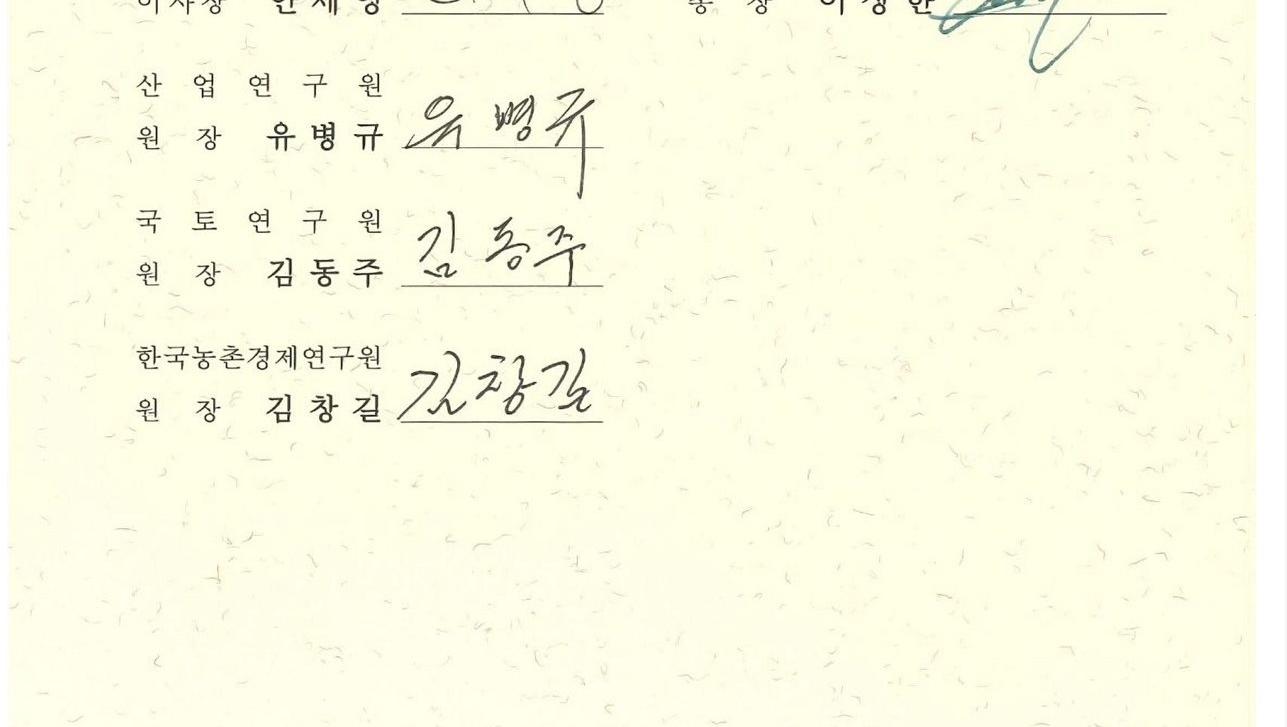 이사장 안세영
총 장 이상한
산 업 연 구 원
원 장 유병규 유병규
국 토 연 구 원
원 장 김동주 김동주
한국농촌경제연구원
원 장 김창길 김창길